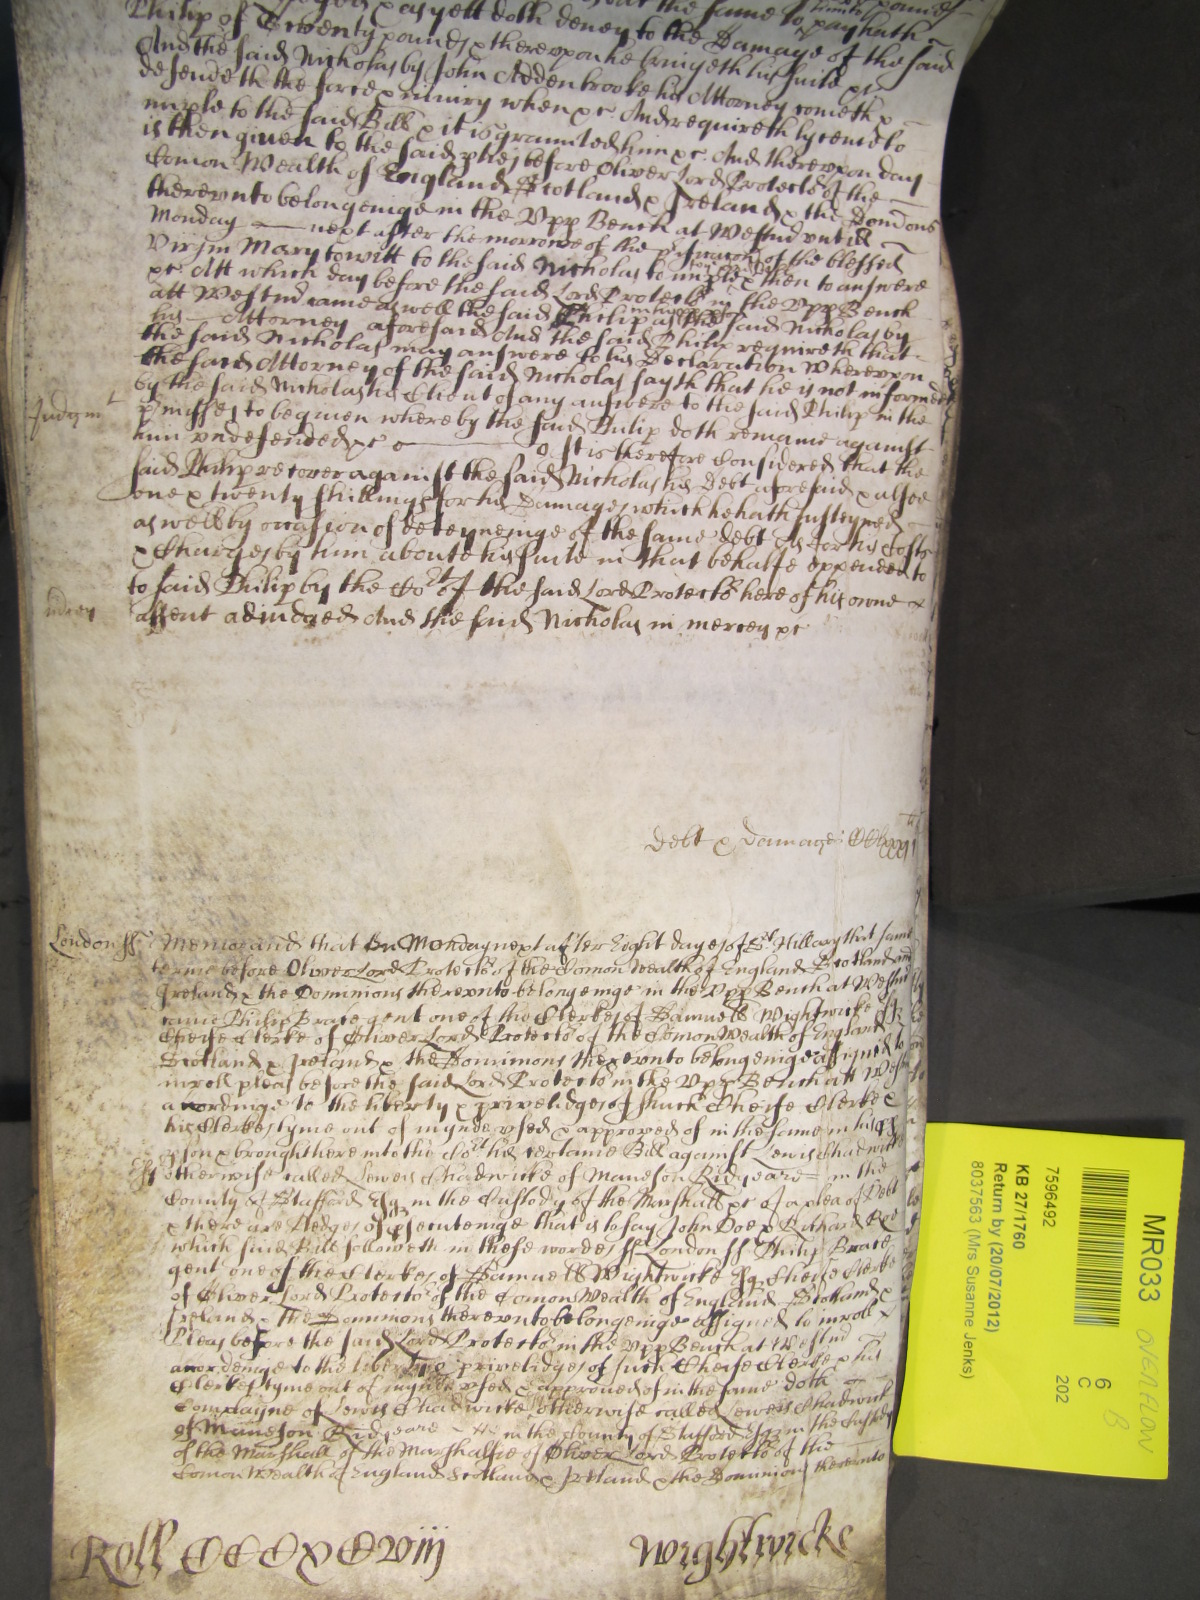 Philip of Twenty pounds & therevpon he bringeth his suite &c
And the said Nicholas by John Addenbrooke his Attorney cometh &
defendeth the force & iniury when &c. And requireth lycence to
imple to the said Bill & it is graunted him &c. And therevpon day
is then given to the said ptyes before Oliver Lord Protector of the
Comon Wealth of England Scotland & Ireland & the Dominons
therevnto belongeinge in the Vpp Bench at Westmr vntill
Monday next after the morrowe of the of the blessed
Virgin Mary to witt to the said Nicholas to imple & then to answere
&c. Att which day before the said Lord Protector in the Vpp Bench
att Westmr came aswell the said Philip as the said Nicholas by
his Attorney aforesaid And the said Philip requireth that
the said Nicholas may answere to his Declaration Wherevpon
the said Attorney of the said Nicholas sayth that he is not informed
by the said Nicholas his Client of any answere to the said Philip in the
Judgmt
pmisses to be given whereby the said Philip doth remaine against
him vndefended &c It is therefore Considered that the
said Philip recover against the said Nicholas his Debt aforesaid & alsoe
one & twenty shillings for his Damages which he hath susteyned
aswell by occasion of deteyneinge of the same debt as for his Costs
& Charges by him aboute his suite in that behalfe expended to
to said Philip by the Cort of the said Lord Protector here of his owne
mercy
assent adiudged And the said Nicholas in mercy &c
debt & damages
London ss
Memorand that on Monday next after Eight dayes of St Hillary that same
terme before Oliver Lord Protector of the Comon Wealth of England Scotland and
Ireland & the Dominions therevnto belongeinge in the Vpp Bench at Westmr
came Philip Brace gent one of the Clerkes of Samuell Wightwicke Esqr
Cheife Clerke of Oliver Lord Protector of the Comon Wealth of England
Scotland & Ireland & the Dominions therevnto belongeinge assigned to
inroll pleas before the said Lord Protector in the Vpp Bench att Westmr
accordinge to the liberty & priviledges of such Cheife Clerke &
his Clerkes tyme out of mynde vsed & approved of in the same in his pper
pson & brought here into the Cort his certaine Bill against Lewis Chadwicke
Esqr otherwise called Lewis Chadwicke of Maneson Ridgeard in the
County of Stafford Esqr in the Custody of the Marshall &c of a plea of Debt
& there are Pledges of psecuteinge that is to say John Doe & Richard Roe
which said Bill followeth in these wordes ss London ss Philip Brace
gent one of the Clerkes of Samuell Wightwicke Esqr Cheife Clerke
of Oliver Lord Protector of the Comon Wealth of England Scotland &
Ireland & the Dominions therevnto belongeinge assigned to inroll
Pleas before the said Lord Protector in the Vpp Bench at Westmr
accordinge to the liberties priviledges of such Cheife Clerke & his
Clerkes tyme out of mynde vsed & approved of in the same doth
Complayne of Lewis Chadwicke otherwise called Lewis Chadwicke
of Maneson Ridgeard in the County of Stafford Esqr in the Custody
of the Marshall of the Marshalsie of Oliver Lord Protector of the
Comon Wealth of England Scotland & Ireland & the Dominions therevnto
Roll CCCXCviij
Wightwicke
MR033
OVERFLOW
B
6
C
202
7596492
KB 27/1760
Return by (20/07/2012)
8037563 (Mrs Susanne Jenks)